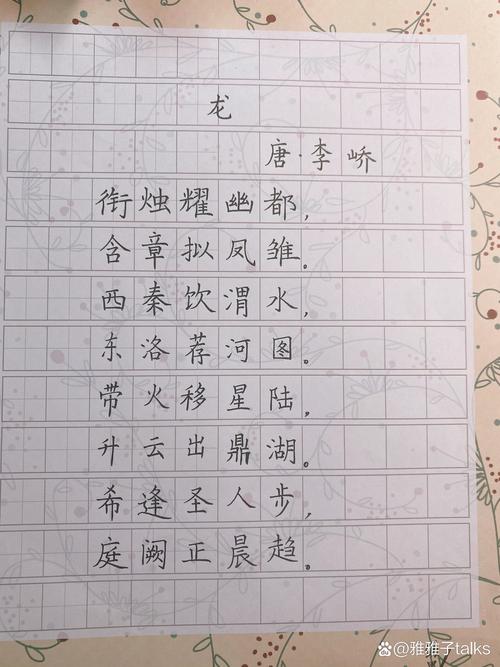 龙
唐·李峤
衔烛耀幽都,
含章拟凤雏。
西秦饮渭水,
东洛荐河图。
带火移星陆,
升云出鼎湖。
希逢圣人步,
庭阙正晨趋。
@雅雅子talks